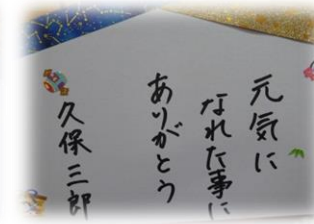 元気に
なれた事に
ありがとう
久保三郎